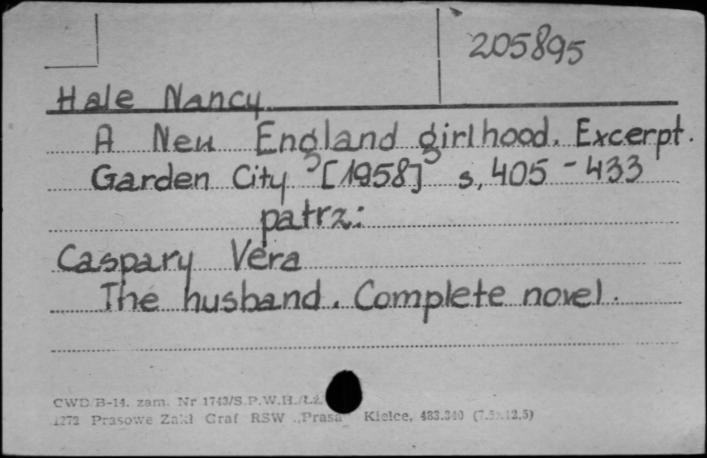 205895
Hale Nancy
A New England girlhood. Excerpt.
Garden City [1958] s, 405 - 433
patrz:
Caspary Vera
The husband. Complete novel.
CWD/B-14. zam. Nr 1743/S.P.W.H./Łż.
1272 Prasowe Zakł Graf RSW „Prasa" Kielce, 483.340 (7.5×12.5)